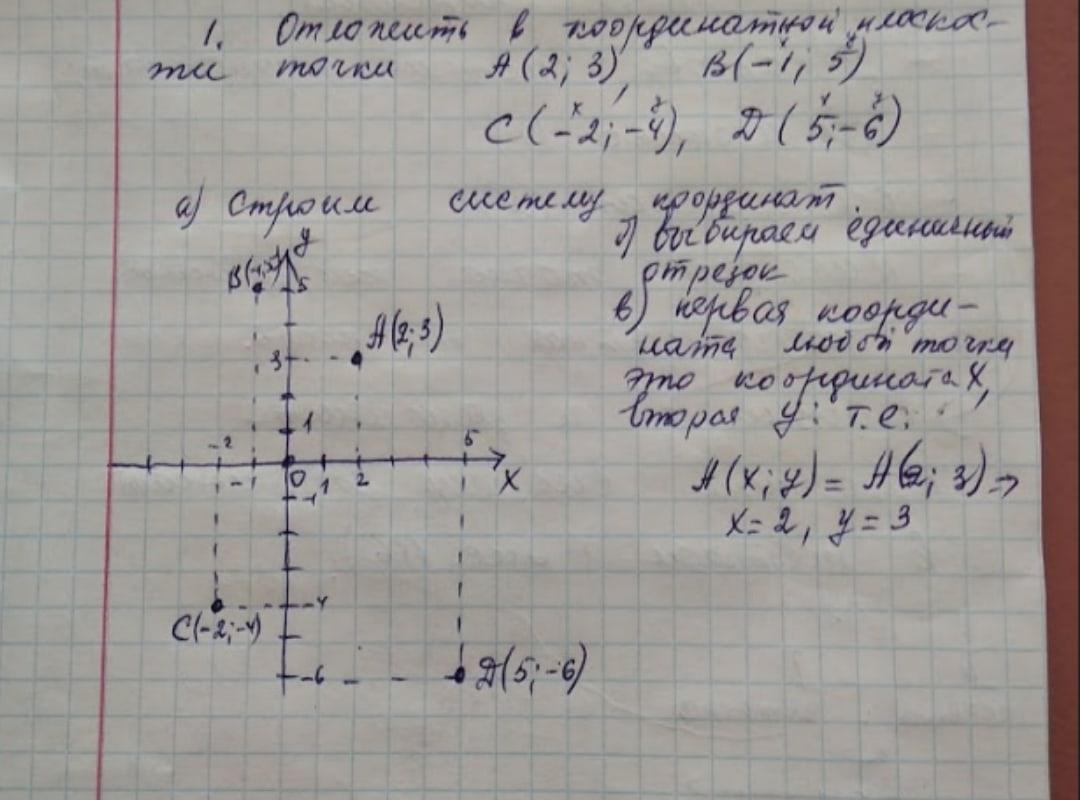 1. Отложить в координатной плоскос-
ти точки А(2; 3), В(-1; 5)
х у
С(-2; -4), D(5; -6)
а) Строим систему координат.
б) выбираем единичный
отрезок
в) первая коорди-
ната любой точки
это координата х,
вторая у: т.е.
А(х; у) = А(2; 3) ⇒
х = 2, у = 3
у
В(-1;5)
5
А(2; 3)
3
1
-2
5
-1
0
1
2
х
-1
-4
С(-2;-4)
-6
D(5; -6)